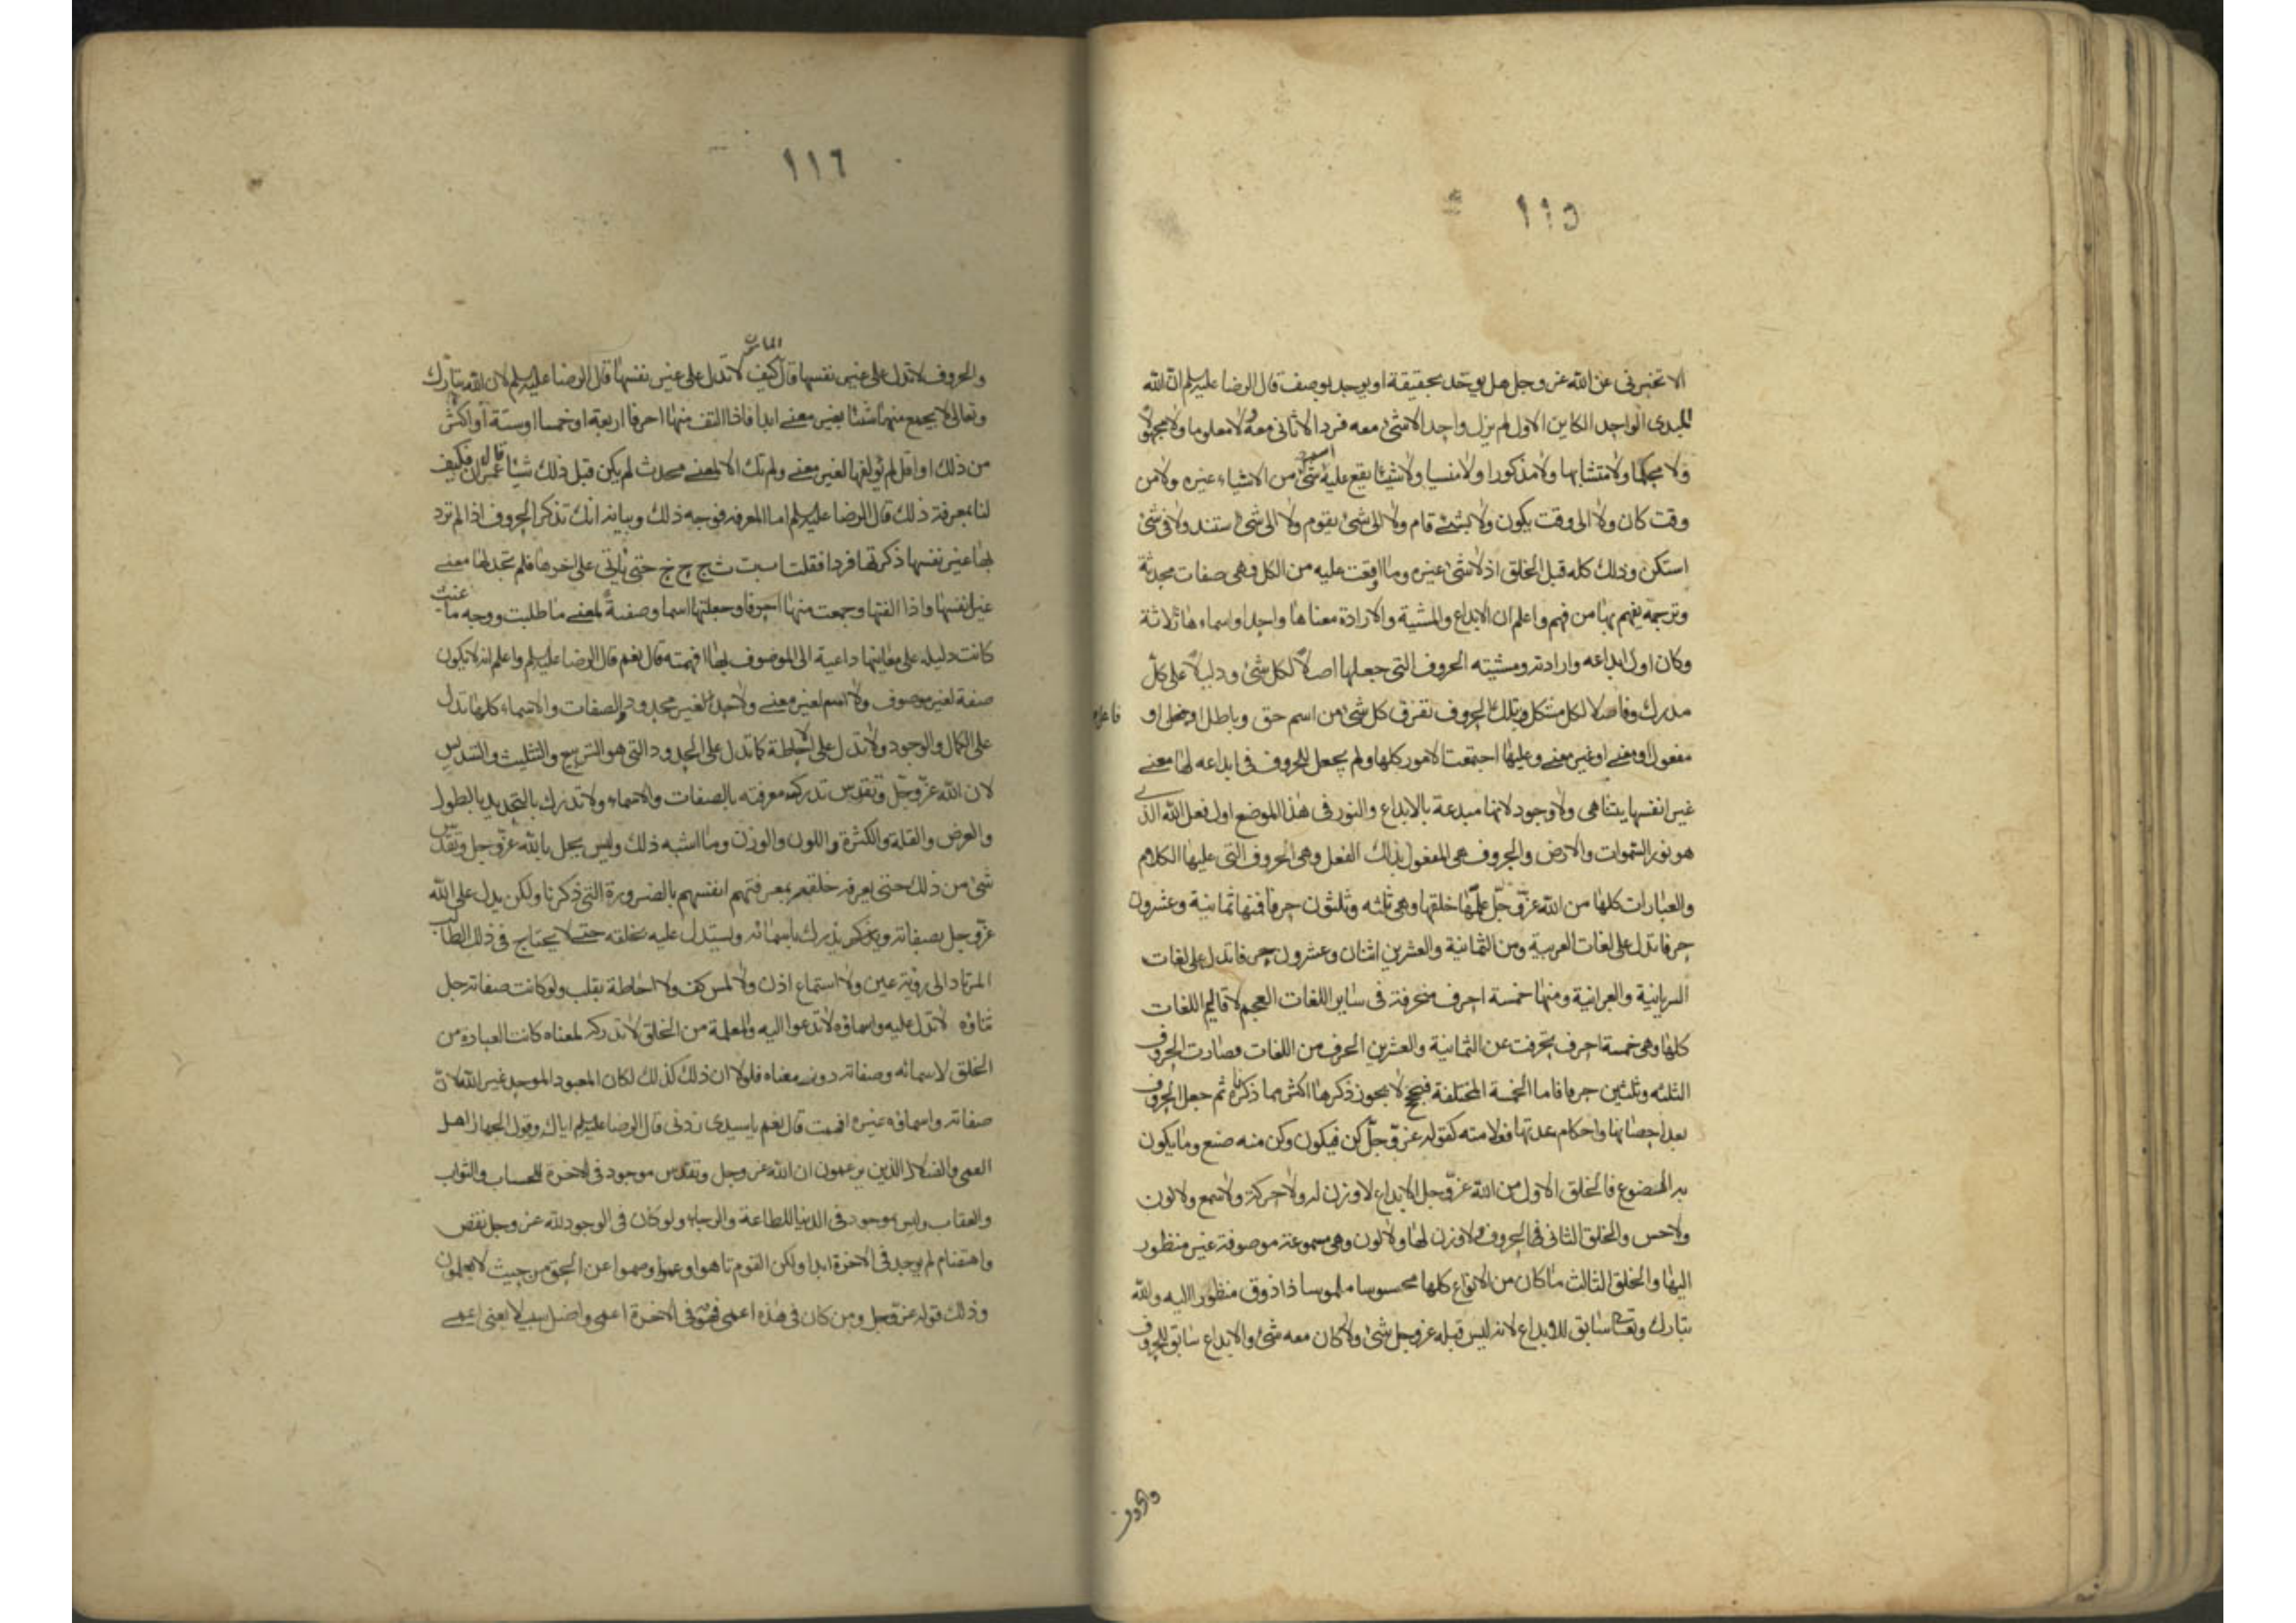 ١١٥
الا تخبرنى عن الله عز وجل هل يوحد بحقيقة او يوحد بوصف قال الرضا عليه السلم ان الله
المبدى الواحد الكاين الاول لم يزل واحدا لا شئ معه فردا لا ثانى معه لا معلوما ولا مجهولا
ولا محكما ولا متشابها ولا مذكورا ولا منسيا ولا شيئا يقع عليه اسم شئ من الاشياء غيره ولا من
وقت كان ولا الى وقت يكون ولا بشئ قام ولا الى شئ يقوم ولا الى شئ استند ولا فى شئ
استكن وذلك كله قبل الخلق اذ لا شئ غيره وما اوقعت عليه من الكل فهى صفات محدثة
وترجمة يفهم بها من فهم واعلم ان الابداع والمشية والارادة معناها واحد واسماءها ثلاثة
وكان اول ابداعه وارادته ومشيته الحروف التى جعلها اصلا لكل شئ ودليلا على كل
مدرك وفاصلا لكل مشكل وبتلك الحروف تفرق كل شئ من اسم حق وباطل او فعل او
مفعول او معنى او غير معنى وعليها اجتمعت الامور كلها ولم يجعل للحروف فى ابداعه لها معنى
غير انفسها يتناهى ولا وجود لانها مبدعة بالابداع والنور فى هذا الموضع اول فعل الله الذى
هو نور السموات والارض والحروف هى المفعول بذلك الفعل وهى الحروف التى عليها الكلام
والعبارات كلها من الله عز وجل علمها خلقها وهى ثلثه وثلثون حرفا فمنها ثمانية وعشرون
حرفا تدل على لغات العربية ومن الثمانية والعشرين اثنان وعشرون حرفا تدل على لغات
السريانية والعبرانية ومنها خمسة احرف متحرفة فى ساير اللغات العجم لاقاليم اللغات
كلها وهى خمسة احرف تحرفت عن الثمانية والعشرين الحرف من اللغات فصارت الحروف
الثلثه وثلثين حرفا فاما الخمسة المختلفة فبحجج لا يجوز ذكرها اكثر مما ذكرناه ثم جعل الحروف
بعد احصائها واحكام عدتها فعلا منه كقوله عز وجل كن فيكون وكن منه صنع وما يكون
به المصنوع فالخلق الاول من الله عز وجل الابداع لا وزن له ولا حركة ولا سمع ولا لون
ولا حس والخلق الثانى الحروف لا وزن لها ولا لون وهى مسموعة موصوفة غير منظور
اليها والخلق الثالث ما كان من الانواع كلها محسوسا ملموسا ذا ذوق منظورا اليه والله
تبارك وتعالى سابق للابداع لانه ليس قبله عز وجل شئ ولا كان معه شئ والابداع سابق للحروف
والحروف
١١٦
والحروف لا تدل على غير نفسها قال المامون كيف لا تدل على غير نفسها قال الرضا عليه السلم لان الله تبارك
وتعالى لا يجمع منها شيئا بغير معنى ابدا فاذا الف منها احرفا اربعة او خمسا او ستة او اكثر
من ذلك او اقل لم يؤلفها لغير معنى ولم تك الا لمعنى محدث لم يكن قبل ذلك شيئا قال عمران فكيف
لنا بمعرفة ذلك قال الرضا عليه السلم اما المعرفة فوجه ذلك وبيانه انك تذكر الحروف اذا لم ترد
بها غير نفسها ذكرتها فردا فقلت ا ب ت ث ج ح خ حتى تاتى على اخرها فلم تجد لها معنى
غير انفسها واذا الفتها وجمعت منها احرفا وجعلتها اسما وصفة لمعنى ما طلبت ووجه ما عنيت
كانت دليله على معانيها داعية الى الموصوف بها افهمته قال نعم قال الرضا عليه السلم واعلم انه لا يكون
صفة لغير موصوف ولا اسم لغير معنى ولا حد لغير محدود والصفات والاسماء كلها تدل
على الكمال والوجود ولا تدل على الاحاطة كما تدل على الحدود التى هو التربيع والتثليث والتسديس
لان الله عز وجل وتقدس تدرك معرفته بالصفات والاسماء ولا تدرك بالتحديد بالطول
والعرض والقلة والكثرة واللون والوزن وما اشبه ذلك وليس يحل بالله عز وجل وتقدس
شئ من ذلك حتى يعرفه خلقه بمعرفتهم انفسهم بالضرورة التى ذكرنا ولكن يدل على الله
عز وجل بصفاته ويدرك باسمائه ويستدل عليه بخلقه حتى لا يحتاج فى ذلك الطالب
المرتاد الى رؤية عين ولا استماع اذن ولا لمس كف ولا احاطة بقلب ولو كانت صفاته جل
ثناؤه لا تدل عليه واسماؤه لا تدعوا اليه والمعلمة من الخلق لا تدركه لمعناه كانت العبادة من
الخلق لاسمائه وصفاته دون معناه فلولا ان ذلك كذلك لكان المعبود الموحد غير الله لان
صفاته واسماؤه غيره افهمت قال نعم يا سيدى زدنى قال الرضا عليه السلم اياك وقول الجهال اهل
العمى والضلال الذين يزعمون ان الله عز وجل وتقدس موجود فى الاخرة للحساب والثواب
والعقاب وليس بموجود فى الدنيا للطاعة والرجاء ولو كان فى الوجود لله عز وجل نقص
واهتضام لم يوجد فى الاخرة ابدا ولكن القوم تاهوا وعموا وصموا عن الحق من حيث لا يعلمون
وذلك قوله عز وجل ومن كان فى هذه اعمى فهو فى الاخرة اعمى واضل سبيلا يعنى اعمى